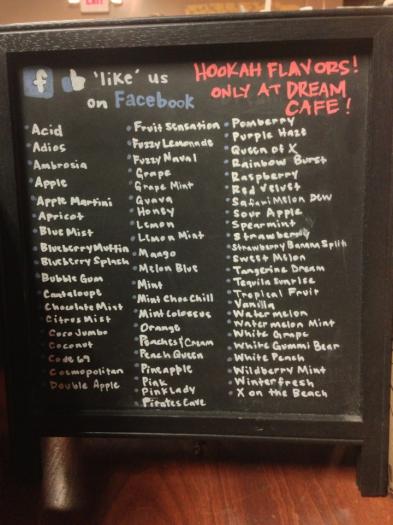 EXIT
f 'like' us
on Facebook
HOOKAH FLAVORS!
ONLY AT DREAM
CAFE!
Acid
Adios
Ambrosia
Apple
Apple Martini
Apricot
Blue Mist
Blueberry Muffin
Blueberry Splash
Bubble Gum
Cantaloupe
Chocolate Mint
Citrus Mist
Coco Jumbo
Coconut
Code 69
Cosmopolitan
Double Apple
Fruit Sensation
Fuzzy Lemonade
Fuzzy Naval
Grape
Grape Mint
Guava
Honey
Lemon
Lemon Mint
Mango
Melon Blue
Mint
Mint Choc Chill
Mint Colossus
Orange
Peaches & Cream
Peach Queen
Pineapple
Pink
Pink Lady
Pirates Cave
Pomberry
Purple Haze
Queen of X
Rainbow Burst
Raspberry
Red Velvet
Safari Melon Dew
Sour Apple
Spearmint
Strawberry
Strawberry Banana Split
Sweet Melon
Tangerine Dream
Tequila Sunrise
Tropical Fruit
Vanilla
Watermelon
Watermelon Mint
White Grape
White Gummi Bear
White Peach
Wildberry Mint
Winterfresh
X on the Beach